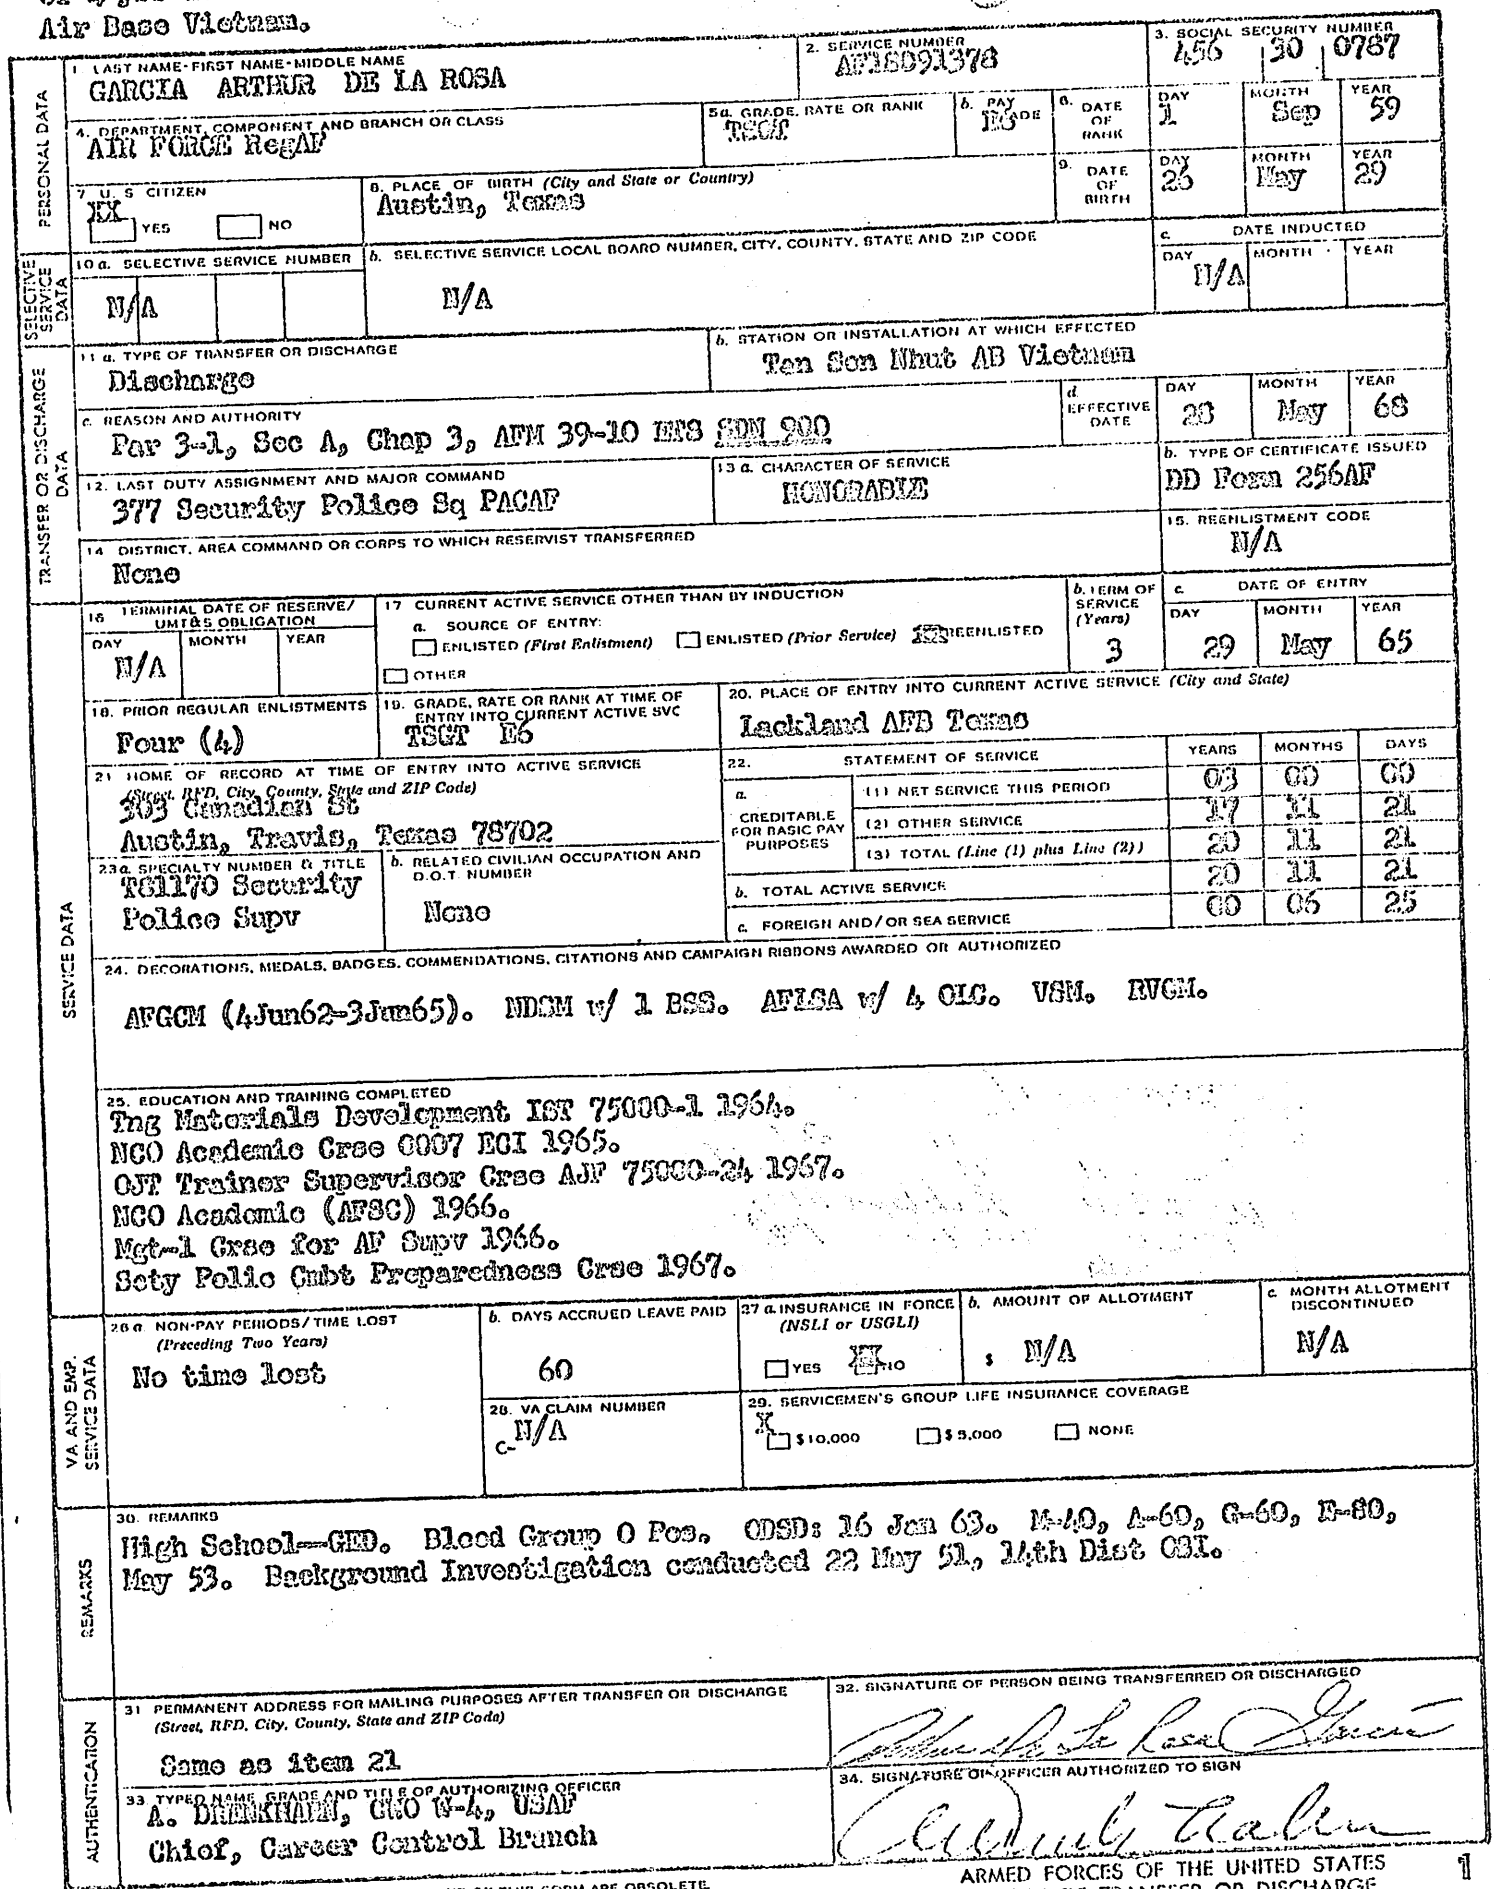 Air Base Vietnam.
PERSONAL DATA
1 LAST NAME-FIRST NAME-MIDDLE NAME
GARCIA ARTHUR DE LA ROSA
2. SERVICE NUMBER
AF18091378
3. SOCIAL SECURITY NUMBER
456 30 0787
4. DEPARTMENT, COMPONENT AND BRANCH OR CLASS
AIR FORCE RegAF
5a. GRADE, RATE OR RANK
TSGT
b. PAY GRADE
E6
6. DATE OF RANK
DAY MONTH YEAR
1 Sep 59
7. U. S CITIZEN
XX YES NO
8. PLACE OF BIRTH (City and State or Country)
Austin, Texas
9. DATE OF BIRTH
DAY MONTH YEAR
26 May 29
SELECTIVE SERVICE DATA
10 a. SELECTIVE SERVICE NUMBER
N/A
b. SELECTIVE SERVICE LOCAL BOARD NUMBER, CITY, COUNTY, STATE AND ZIP CODE
N/A
c. DATE INDUCTED
DAY MONTH YEAR
N/A
TRANSFER OR DISCHARGE DATA
11 a. TYPE OF TRANSFER OR DISCHARGE
Discharge
b. STATION OR INSTALLATION AT WHICH EFFECTED
Tan Son Nhut AB Vietnam
c. REASON AND AUTHORITY
Par 3-1, Sec A, Chap 3, AFM 39-10 ETS SDN 900
d. EFFECTIVE DATE
DAY MONTH YEAR
28 May 68
12. LAST DUTY ASSIGNMENT AND MAJOR COMMAND
377 Security Police Sq PACAF
13 a. CHARACTER OF SERVICE
HONORABLE
b. TYPE OF CERTIFICATE ISSUED
DD Form 256AF
14 DISTRICT, AREA COMMAND OR CORPS TO WHICH RESERVIST TRANSFERRED
None
15. REENLISTMENT CODE
N/A
SERVICE DATA
16 TERMINAL DATE OF RESERVE/ UMT&S OBLIGATION
DAY MONTH YEAR
N/A
17 CURRENT ACTIVE SERVICE OTHER THAN BY INDUCTION
a. SOURCE OF ENTRY:
ENLISTED (First Enlistment) ENLISTED (Prior Service) REENLISTED
OTHER
b. TERM OF SERVICE (Years)
3
c. DATE OF ENTRY
DAY MONTH YEAR
29 May 65
18. PRIOR REGULAR ENLISTMENTS
Four (4)
19. GRADE, RATE OR RANK AT TIME OF ENTRY INTO CURRENT ACTIVE SVC
TSGT E6
20. PLACE OF ENTRY INTO CURRENT ACTIVE SERVICE (City and State)
Lackland AFB Texas
21 HOME OF RECORD AT TIME OF ENTRY INTO ACTIVE SERVICE
(Street, RFD, City, County, State and ZIP Code)
303 Canadian St
Austin, Travis, Texas 78702
22. STATEMENT OF SERVICE YEARS MONTHS DAYS
a. CREDITABLE FOR BASIC PAY PURPOSES
(1) NET SERVICE THIS PERIOD 03 00 00
(2) OTHER SERVICE 17 11 21
(3) TOTAL (Line (1) plus Line (2)) 20 11 21
b. TOTAL ACTIVE SERVICE 20 11 21
c. FOREIGN AND/OR SEA SERVICE 00 06 25
23a. SPECIALTY NUMBER & TITLE
T81170 Security
Police Supv
b. RELATED CIVILIAN OCCUPATION AND D.O.T. NUMBER
None
24. DECORATIONS, MEDALS, BADGES, COMMENDATIONS, CITATIONS AND CAMPAIGN RIBBONS AWARDED OR AUTHORIZED
AFGCM (4Jun62-3Jun65). NDSM w/ 1 BSS. AFLSA w/ 4 OLC. VSM. RVCM.
25. EDUCATION AND TRAINING COMPLETED
Tng Materials Development IST 75000-1 1964.
NCO Academic Crse 0007 ECI 1965.
OJT Trainer Supervisor Crse AJF 75000-24 1967.
NCO Academic (AFSC) 1966.
Mgt-1 Crse for AF Supv 1966.
Scty Polic Cmbt Preparedness Crse 1967.
VA AND EMP. SERVICE DATA
26 a. NON-PAY PERIODS/TIME LOST
(Preceding Two Years)
No time lost
b. DAYS ACCRUED LEAVE PAID
60
27 a. INSURANCE IN FORCE
(NSLI or USGLI)
YES NO
b. AMOUNT OF ALLOTMENT
$ N/A
c. MONTH ALLOTMENT DISCONTINUED
N/A
28. VA CLAIM NUMBER
C- N/A
29. SERVICEMEN'S GROUP LIFE INSURANCE COVERAGE
X $10,000 $5,000 NONE
REMARKS
30. REMARKS
High School--GED. Blood Group O Pos. ODSD: 16 Jan 63. M-40, A-60, G-60, E-80,
May 53. Background Investigation conducted 22 May 51, 14th Dist OSI.
AUTHENTICATION
31 PERMANENT ADDRESS FOR MAILING PURPOSES AFTER TRANSFER OR DISCHARGE
(Street, RFD, City, County, State and ZIP Code)
Same as item 21
32. SIGNATURE OF PERSON BEING TRANSFERRED OR DISCHARGED
Arthur De La Rosa Garcia
33. TYPED NAME, GRADE AND TITLE OF AUTHORIZING OFFICER
A. DRENKHAHN, CWO W-4, USAF
Chief, Career Control Branch
34. SIGNATURE OF OFFICER AUTHORIZED TO SIGN
ARMED FORCES OF THE UNITED STATES
1